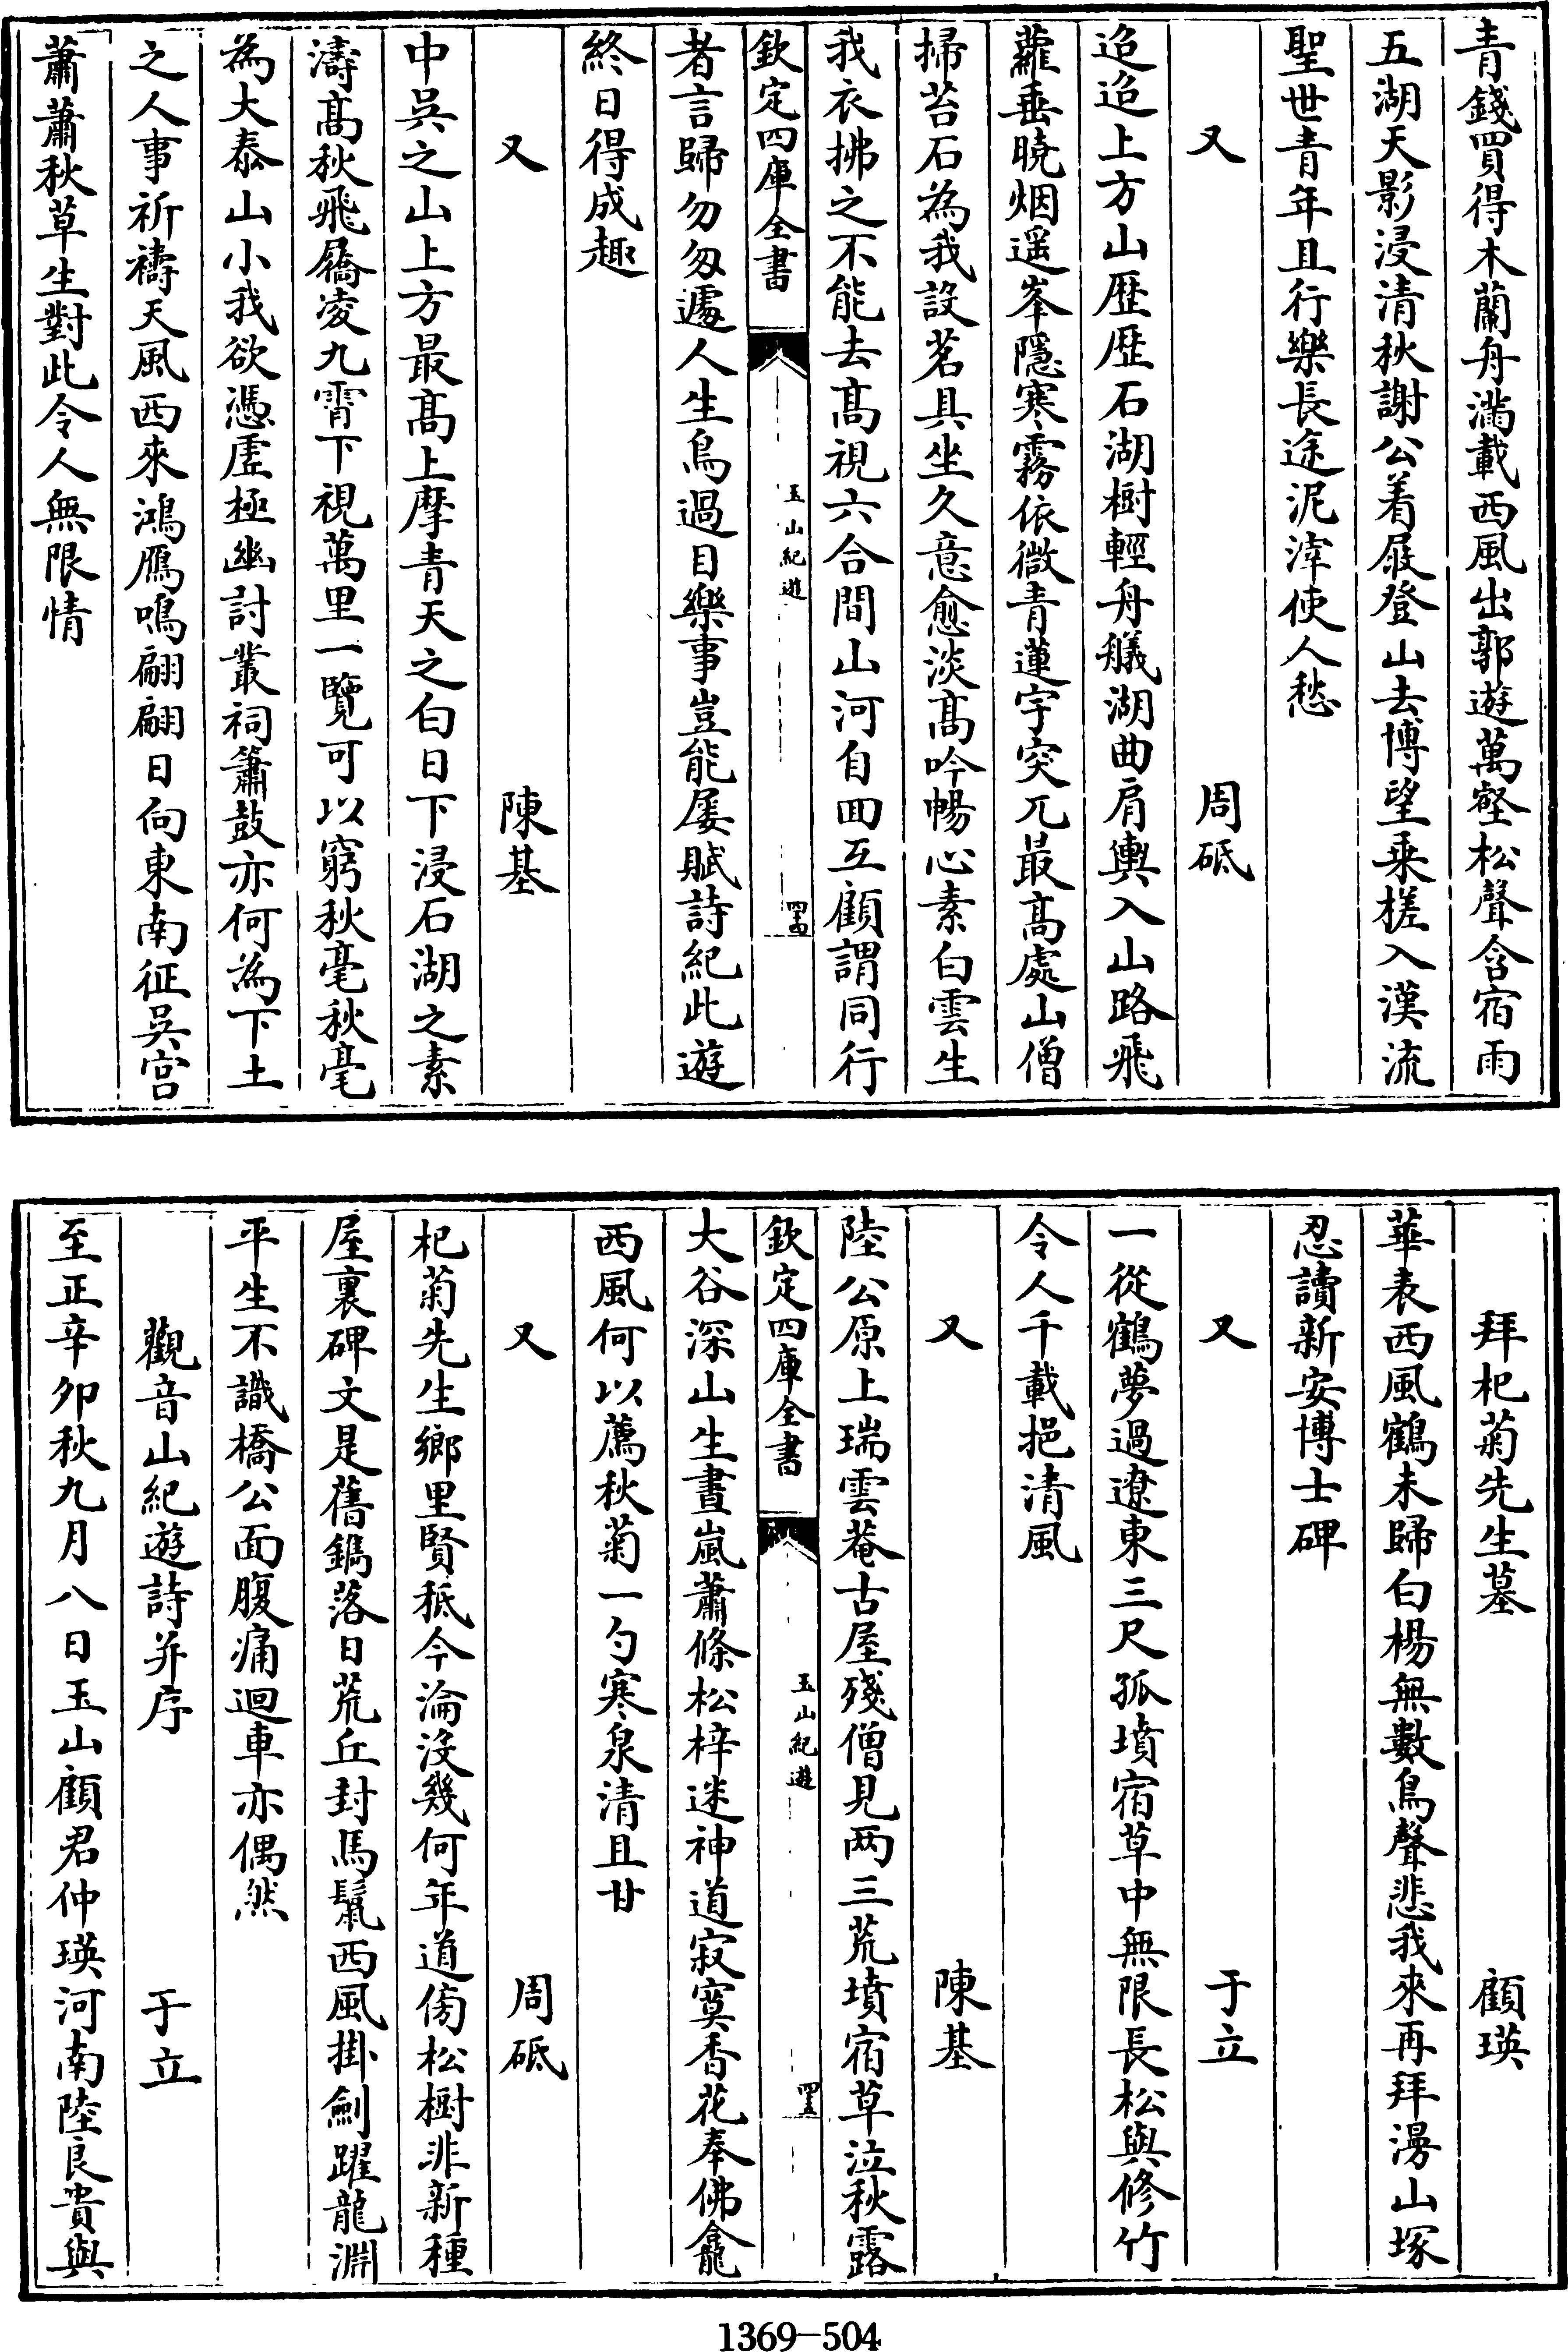 青錢買得木蘭舟滿載西風出郭遊萬壑松聲含宿雨
五湖天影浸清秋謝公着屐登山去博望乘槎入漢流
聖世青年且行樂長途泥滓使人愁
又　周砥
迢迢上方山歴歴石湖樹輕舟艤湖曲肩輿入山路飛
蘿垂曉烟遥峯隱寒霧依微青蓮宇突兀最髙處山僧
掃苔石為我設茗具坐久意愈淡髙吟暢心素白雲生
我衣拂之不能去髙視六合間山河自囬互顧謂同行
欽定四庫全書　玉山紀遊　四十四
者言歸勿匆遽人生鳥過目樂事豈能屡賦詩紀此遊
終日得成趣
又　陳基
中吳之山上方最髙上摩青天之白日下浸石湖之素
濤髙秋飛屩凌九霄下視萬里一覽可以窮秋毫秋毫
為大泰山小我欲憑虛極幽討叢祠簫鼓亦何為下土
之人事祈禱天風西來鴻鴈鳴翩翩日向東南征吳宫
蕭蕭秋草生對此令人無限情
拜杞菊先生墓　顧瑛
華表西風鶴未歸白楊無數鳥聲悲我來再拜澷山塚
忍讀新安博士碑
又　于立
一從鶴夢過遼東三尺孤墳宿草中無限長松與修竹
令人千載挹清風
又　陳基
陸公原上瑞雲菴古屋殘僧見两三荒墳宿草泣秋露
欽定四庫全書　玉山紀遊　四十五
大谷深山生晝嵐蕭條松梓迷神道寂寞香花奉佛龕
西風何以薦秋菊一勺寒泉清且甘
又　周砥
杞菊先生鄉里賢秪今淪沒幾何年道傍松樹非新種
屋裏碑文是舊鐫落日荒丘封馬鬛西風掛劍躍龍淵
平生不識橋公面腹痛迴車亦偶然
觀音山紀遊詩并序　于立
至正辛夘秋九月八日玉山顧君仲瑛河南陸良貴與
1369-504